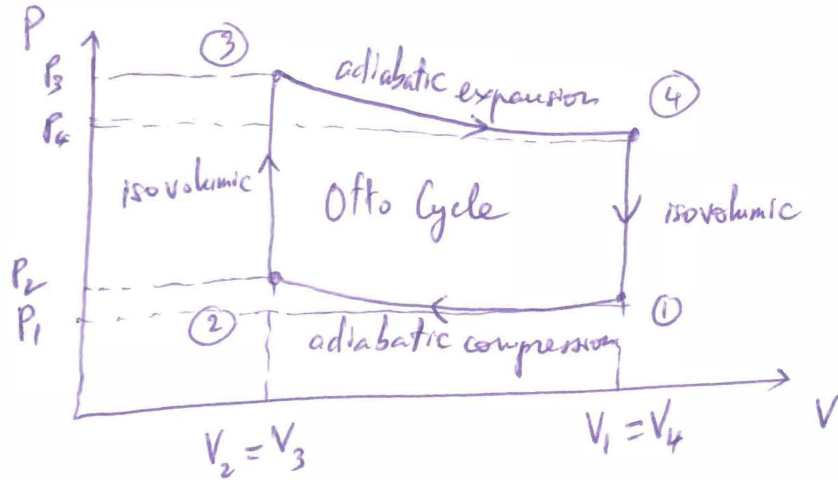 P
③
P₃
adiabatic expansion
④
P₄
isovolumic
Otto Cycle
isovolumic
P₂
P₁
②
①
adiabatic compression
V
V₂ = V₃
V₁ = V₄